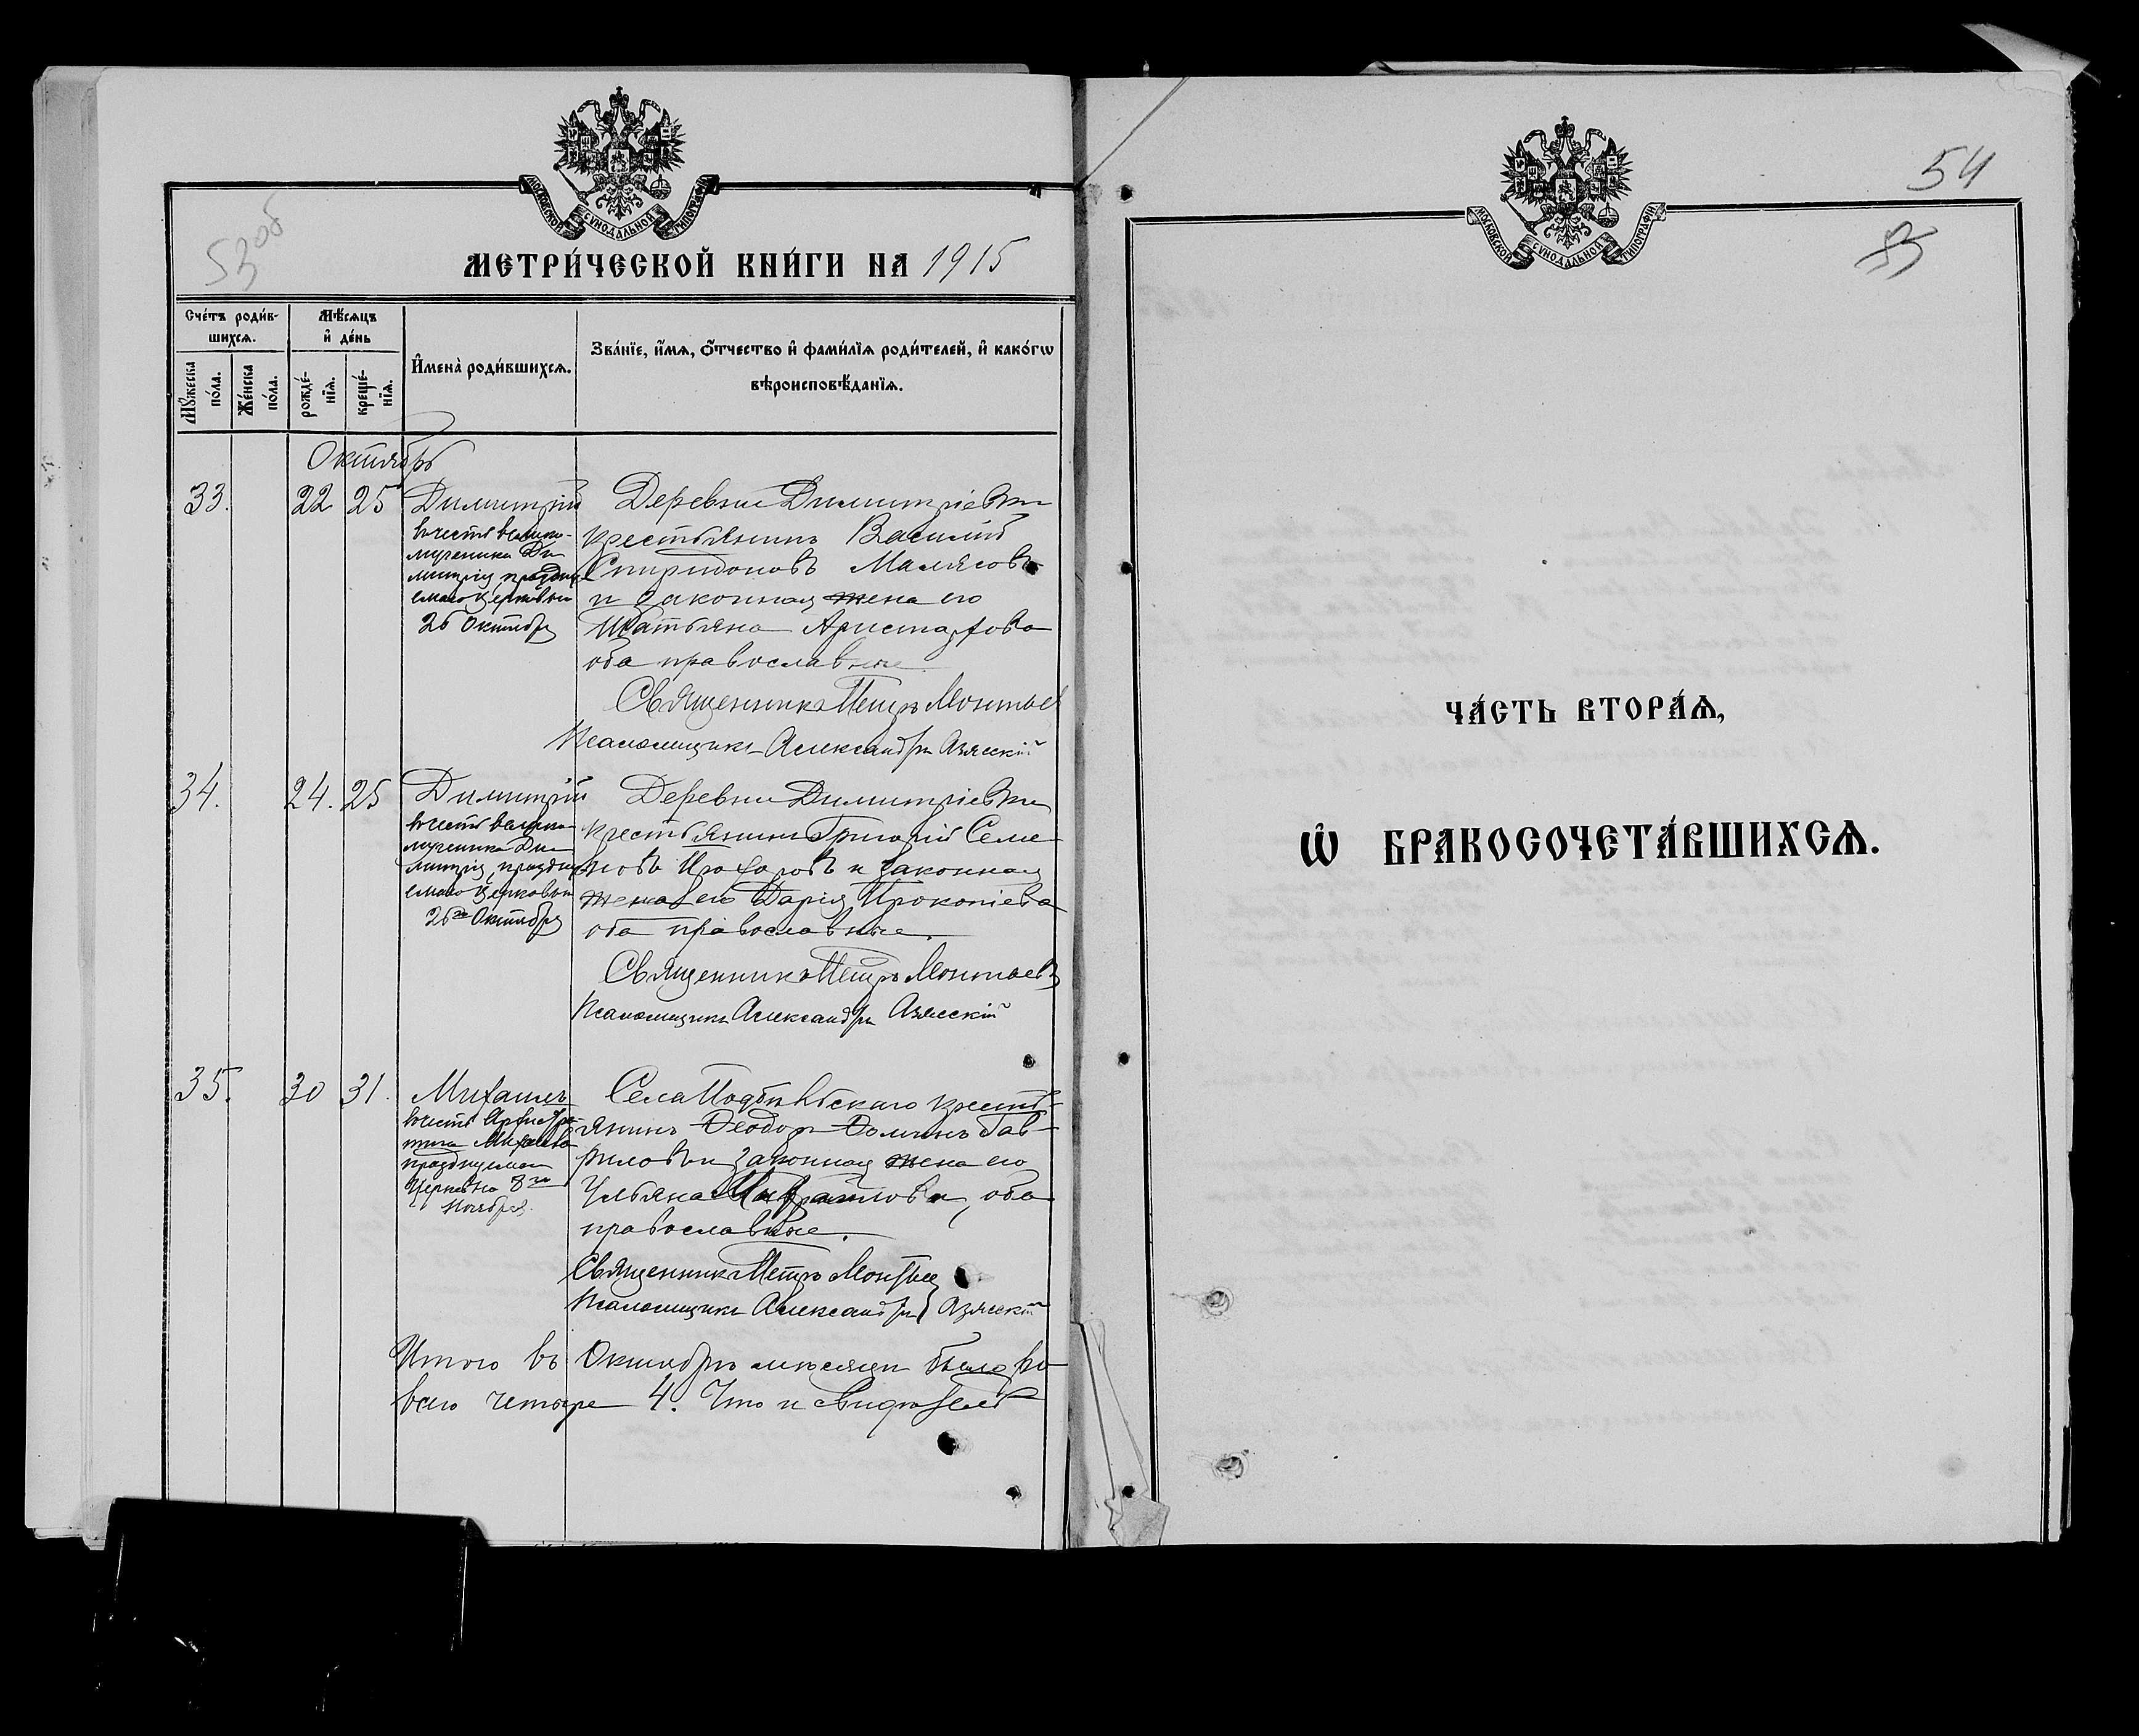 МОСКОВСКОЙ СѴНОДАЛЬНОЙ ТИПОГРАФІИ
53об
МЕТРИ́ЧЕСКОЙ КНИ́ГИ НА 1915
Сче́тъ роди́в-
шихсѧ.
Мѣ́сѧцъ
и҆ де́нь
Мꙋ́жеска
по́ла.
Же́нска
по́ла.
рожде́-
нїѧ.
креще́-
нїѧ.
И҆мена̀ роди́вшихсѧ.
Зва́нїе, и҆́мѧ, ѻ҆́тчество и҆ фами́лїѧ роди́телей, и҆ како́гѡ
вѣроисповѣ́данїѧ.
Октябрь
33. 22 25 Димитрій
въ честь велико-
мученика Ди
митрія праздну
емаго церковью
26 Октября
Деревни Димитріевки
крестьянинъ Василій
Спиридоновъ Малясовъ
и законная жена его
Татьяна Аристархова
оба православные
Священникъ Петръ
Псаломщикъ Александръ Азясскій
34. 24. 25 Димитрій
въ честь велико
мученика Ди
митрія, праздну
емаго церковью
26го Октября
Деревни Димитріевки
крестьянинъ Григорій Семе
новъ Прохоровъ и законная
жена его Дарія Прокопіева
оба православные.
Священникъ Петръ
Псаломщикъ Александръ Азясскій
35. 30 31. Михаилъ
въ честь Архистра
тига Михаила
празднуемаго
Церковью 8го
Ноября.
Села крестъ-
янинъ Ѳеодоръ Гав-
риловъ и законная жена его
Ульяна оба
православные.
Священникъ Петръ
Псаломщикъ Александръ Азясскій
Итого въ Октябрѣ мѣсяцѣ было ро
всего четыре 4. Что и свидѣтель
54
53
МОСКОВСКОЙ СѴНОДАЛЬНОЙ ТИПОГРАФІИ
ЧА́СТЬ ВТОРА́Ѧ,
Ѡ҆ БРАКОСОЧЕТА́ВШИХСѦ.